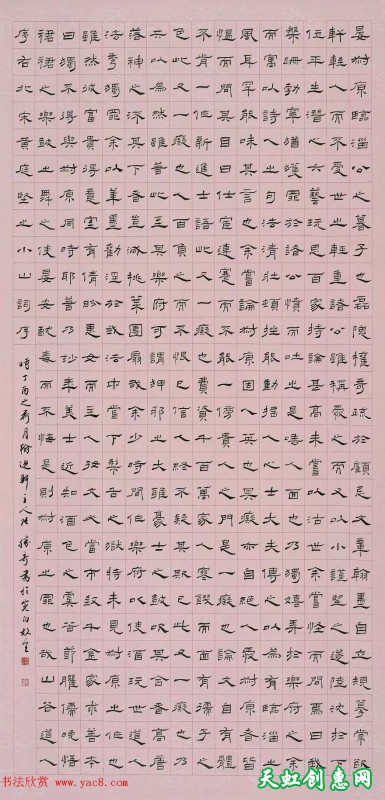 晏叔原臨淄公之暮子也磊隗權奇疏於顧忌文章翰墨自立規摹常欲
軒輊人而不受世之輕重諸公雖稱愛之而又以小謹望之遂陸沉於下
位平生潛心六藝玩思百家持論甚高未嘗以沽世余嘗怪而問焉曰我
槃跚勃窣猶獲罪於諸公憤而吐之是唾人面也乃獨嬉弄於樂府之餘
而寓以詩人句法清壯頓挫能動搖人心士大夫傳之以為有臨淄之
風耳罕能味其言也余嘗論叔原固人英也其癡亦自絕人愛叔原者皆
慍而問其目曰仕宦連蹇而不能一傍貴人之門是一癡也論文自有體
不肯一作新進士語此又一癡也費資千百萬家人寒飢而面有孺子之
色此又一癡也人百負之而不恨己信人終不疑其欺己此又一癡也乃
共以為然雖若此至其樂府可謂狎邪之大雅豪士之鼓吹其合者高唐
洛神之流其下者豈減桃葉團扇哉余少時間作樂府以使酒玩世道人
法秀獨罪余以筆墨勸淫於我法中當下犁舌之獄特未見叔原之作耶
雖然彼富貴得意室有倩盼惠女而主人好文必當市購千金家求善本
曰獨不得與叔原同時耶若乃妙年美士近知酒色之虞苦節臞儒晚悟
裙裾之樂鼓之舞之使宴安酖毒而不悔是則叔原之罪也哉山谷道人
序右北宋黃庭堅之小山詞序 時丁酉之 月 軒主人
书法欣赏
www.yac8.com
天虹创惠网